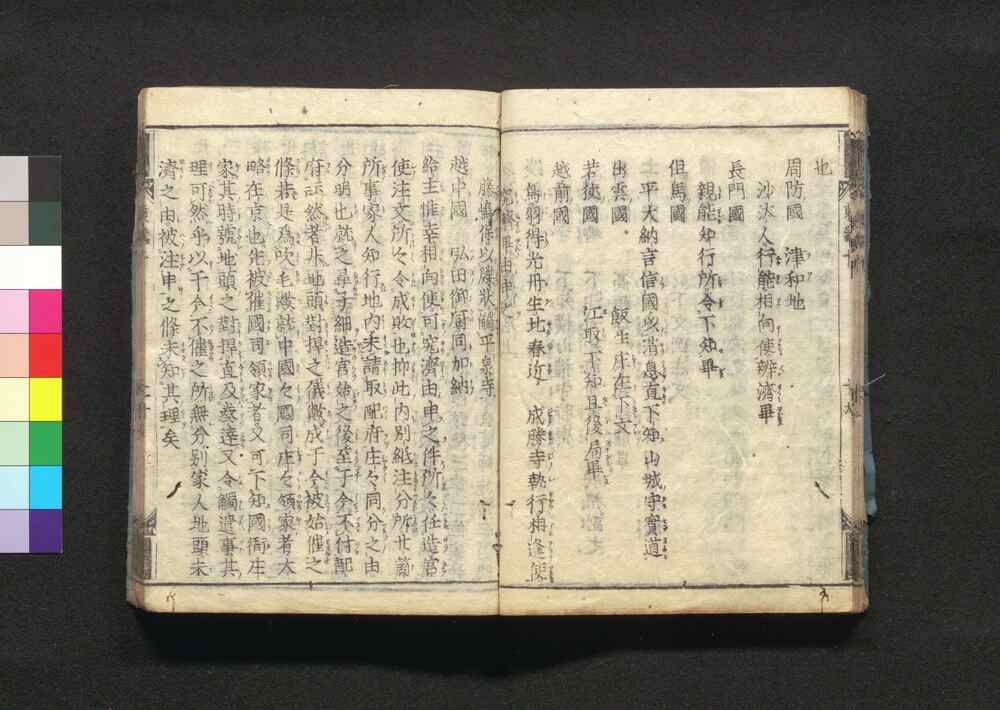 也
周防國　津和地
沙汰人行能相向使辨濟畢
長門國
親能知行所令下知畢
但馬國
平大納言信國以消息直下知山城守實道
出雲國
飯生庄在下文
若狹國　江取下知且後局畢
越前國
鳥羽得光丹生北春近　成勝寺執行相逢使
究濟畢由申之
藤嶋保以牒狀觸平泉寺
越中國　弘田御厨同加納
給主惟幸相向使可究濟由申之件所々任造宮
使注文所々令成敗也抑此内別紙注分所廿箇
所事家人知行地内未請取配府庄々同分之由
分明也就之尋子細造宮始之後至于今不付配
府云然者非地頭對捍之儀歟成于今被始催之
條若是爲吹毛歟就中國々國司庄々領家者大
略在京也先被催國司領家者又可下知國衙庄
家其時號地頭之對捍直及發遣又令觸遣事其
理可然乎以于今不催之所無分別家人地頭未
濟之由被注申之條未知其理矣